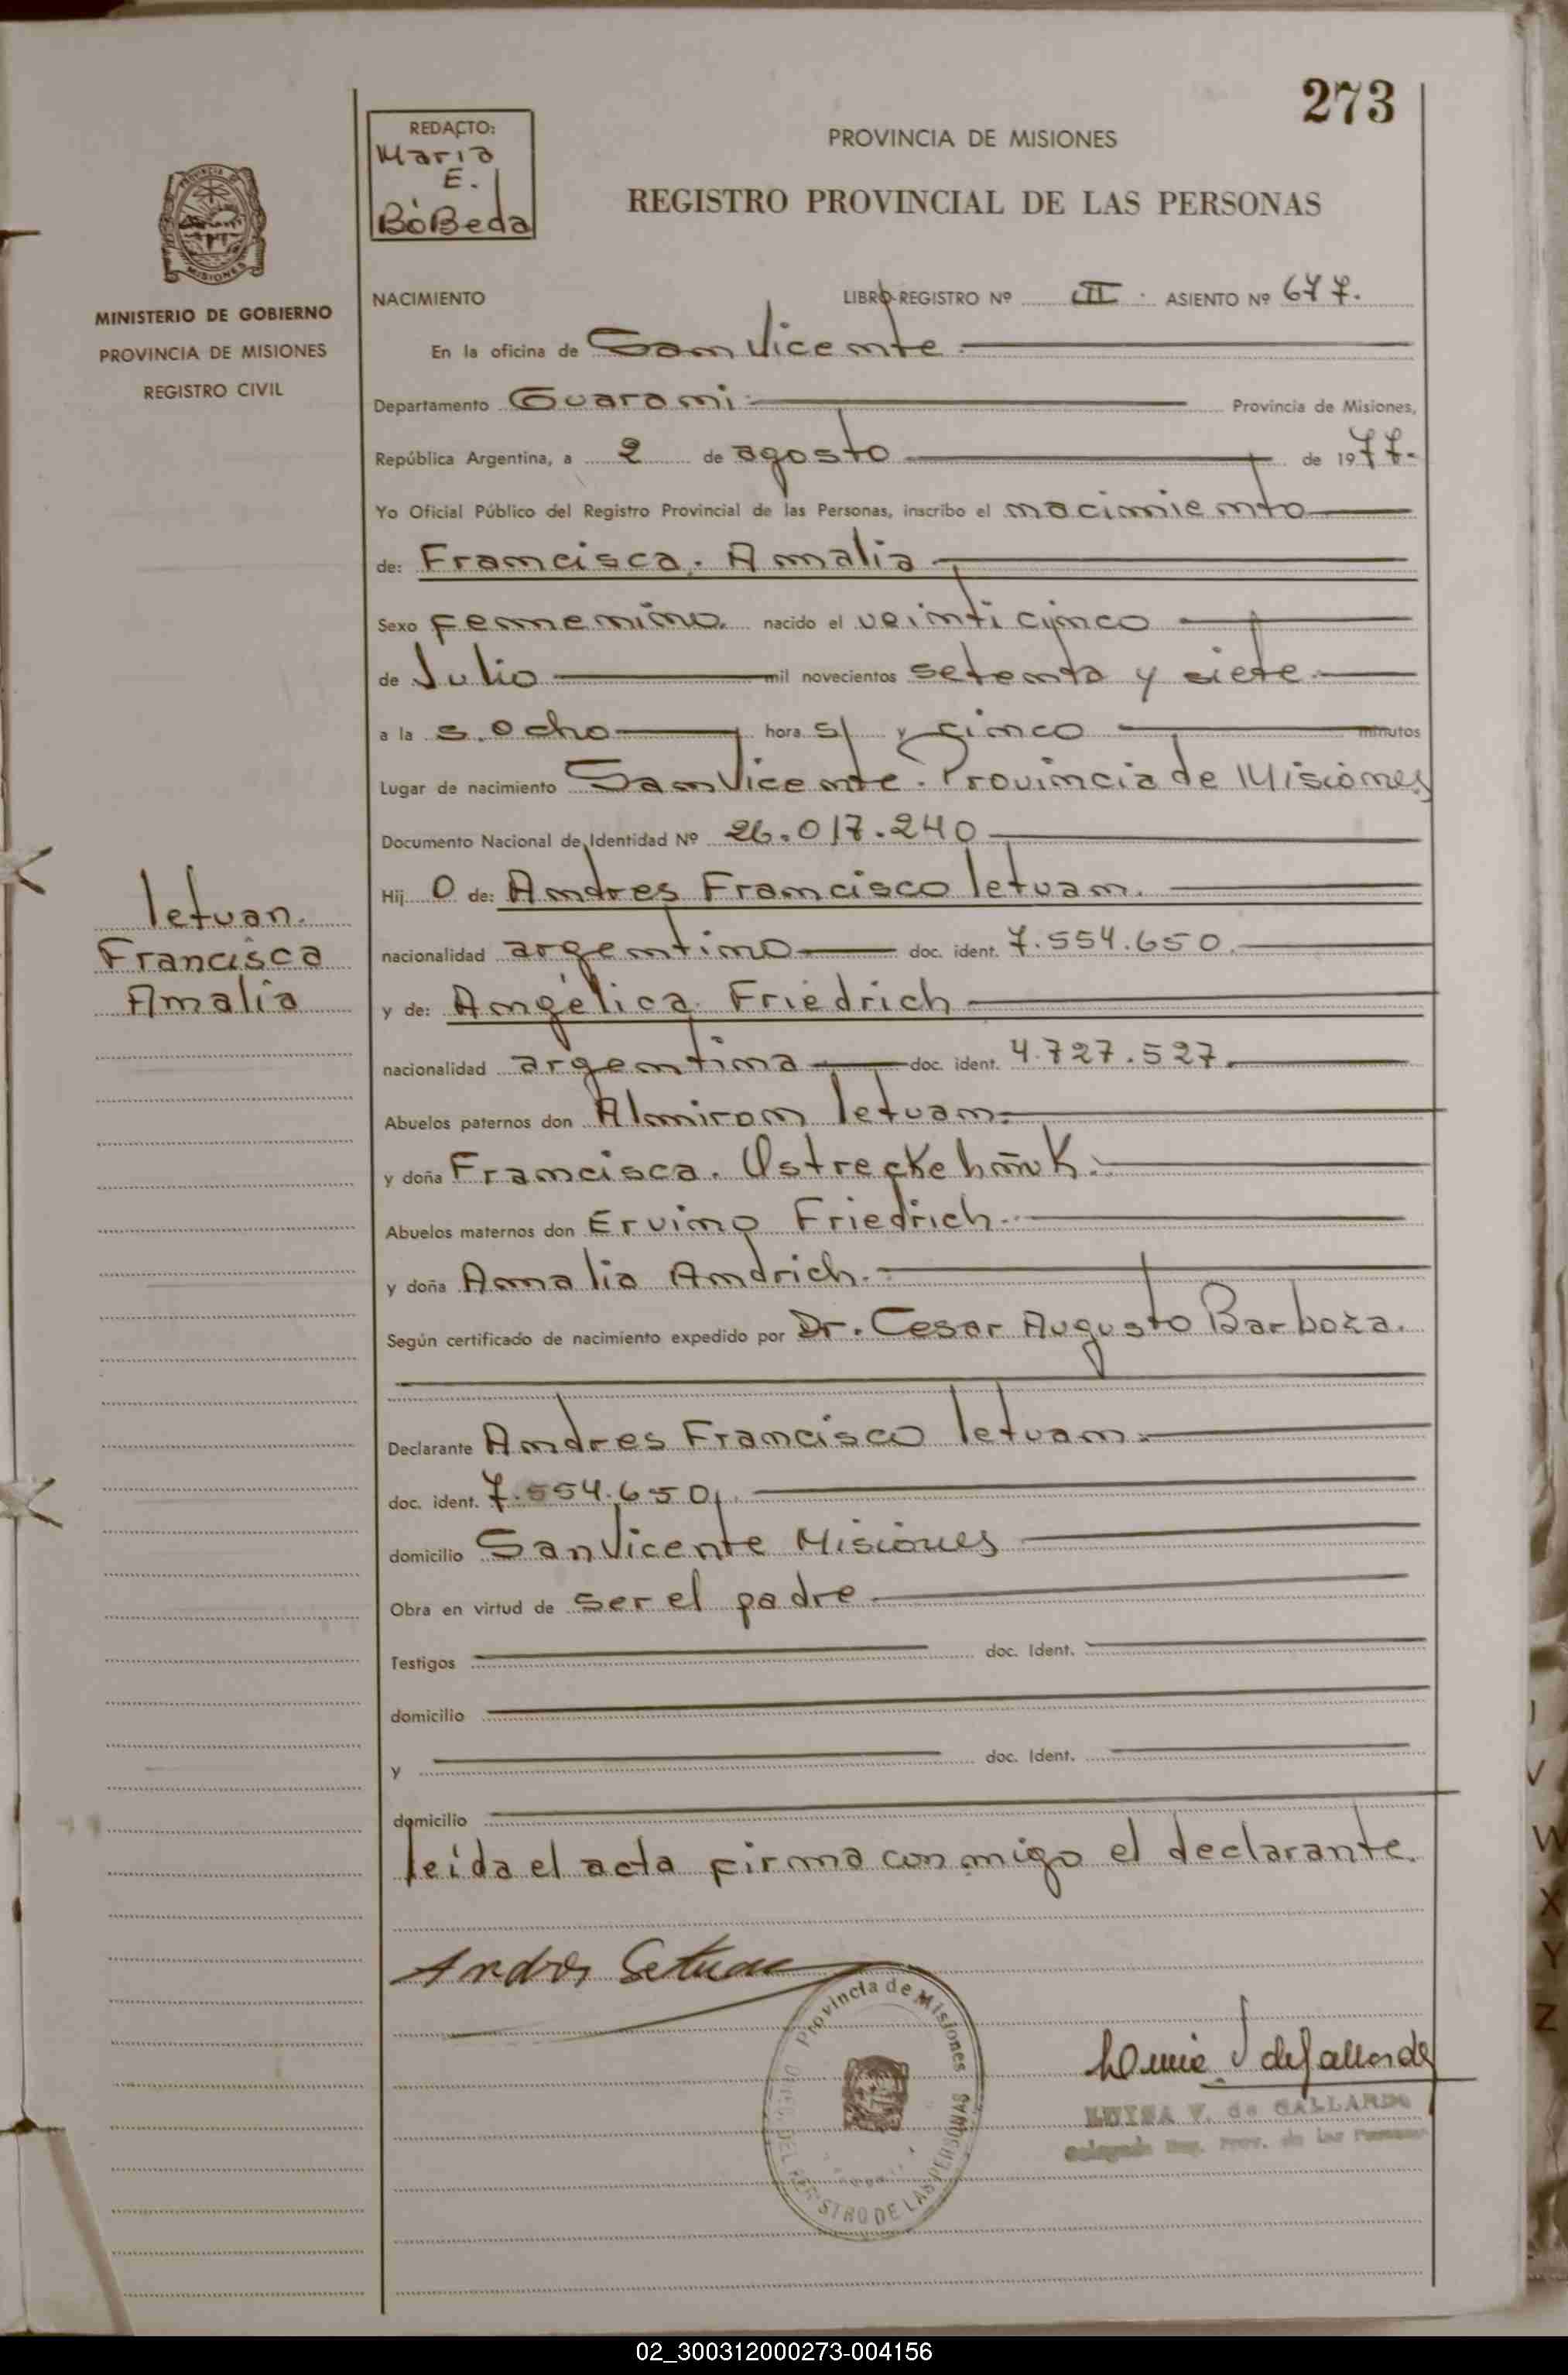 273
REDACTO:
Maria
E.
BóBeda
PROVINCIA DE MISIONES
REGISTRO PROVINCIAL DE LAS PERSONAS
MINISTERIO DE GOBIERNO
PROVINCIA DE MISIONES
REGISTRO CIVIL
NACIMIENTO LIBRO-REGISTRO Nº III. ASIENTO Nº 677.
En la oficina de San Vicente.
Departamento Guarani Provincia de Misiones,
República Argentina, a 2 de agosto de 1977.
Yo Oficial Público del Registro Provincial de las Personas, inscribo el nacimiento
de: Francisca. Amalia
Sexo femenino. nacido el veinticinco
de Julio mil novecientos setenta y siete
a la s. ocho hora s/ y cinco minutos
Lugar de nacimiento San Vicente. Provincia de Misiones
Documento Nacional de Identidad Nº 26.017.240
Hij o de: Andres Francisco Tetuan.
nacionalidad argentino doc. ident. 7.554.650.
y de: Angélica Friedrich
nacionalidad argentina doc. ident. 4.727.527.
Abuelos paternos don Almiron Tetuan.
y doña Francisca.
Abuelos maternos don Ervino Friedrich.
y doña Amalia Andrich.
Según certificado de nacimiento expedido por Dr. Cesar Augusto Barboza.
Tetuan.
Francisca
Amalia
Declarante Andres Francisco Tetuan.
doc. ident. 7.554.650
domicilio San Vicente Misiones
Obra en virtud de ser el padre
Testigos doc. Ident.
domicilio
y doc. Ident.
domicilio
leída el acta firma conmigo el declarante.
Andrés
Provincia de Misiones
DIREC. DEL REGISTRO DE LAS PERSONAS
LUISA V. de GALLARDO
Delegada Reg. Prov. de las Personas
V
W
X
Y
Z
02_300312000273-004156